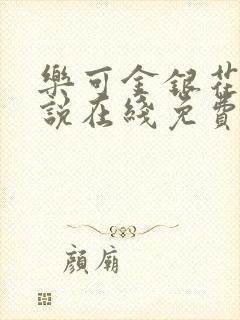 樂可金銀花
說在綫免費
顏廟